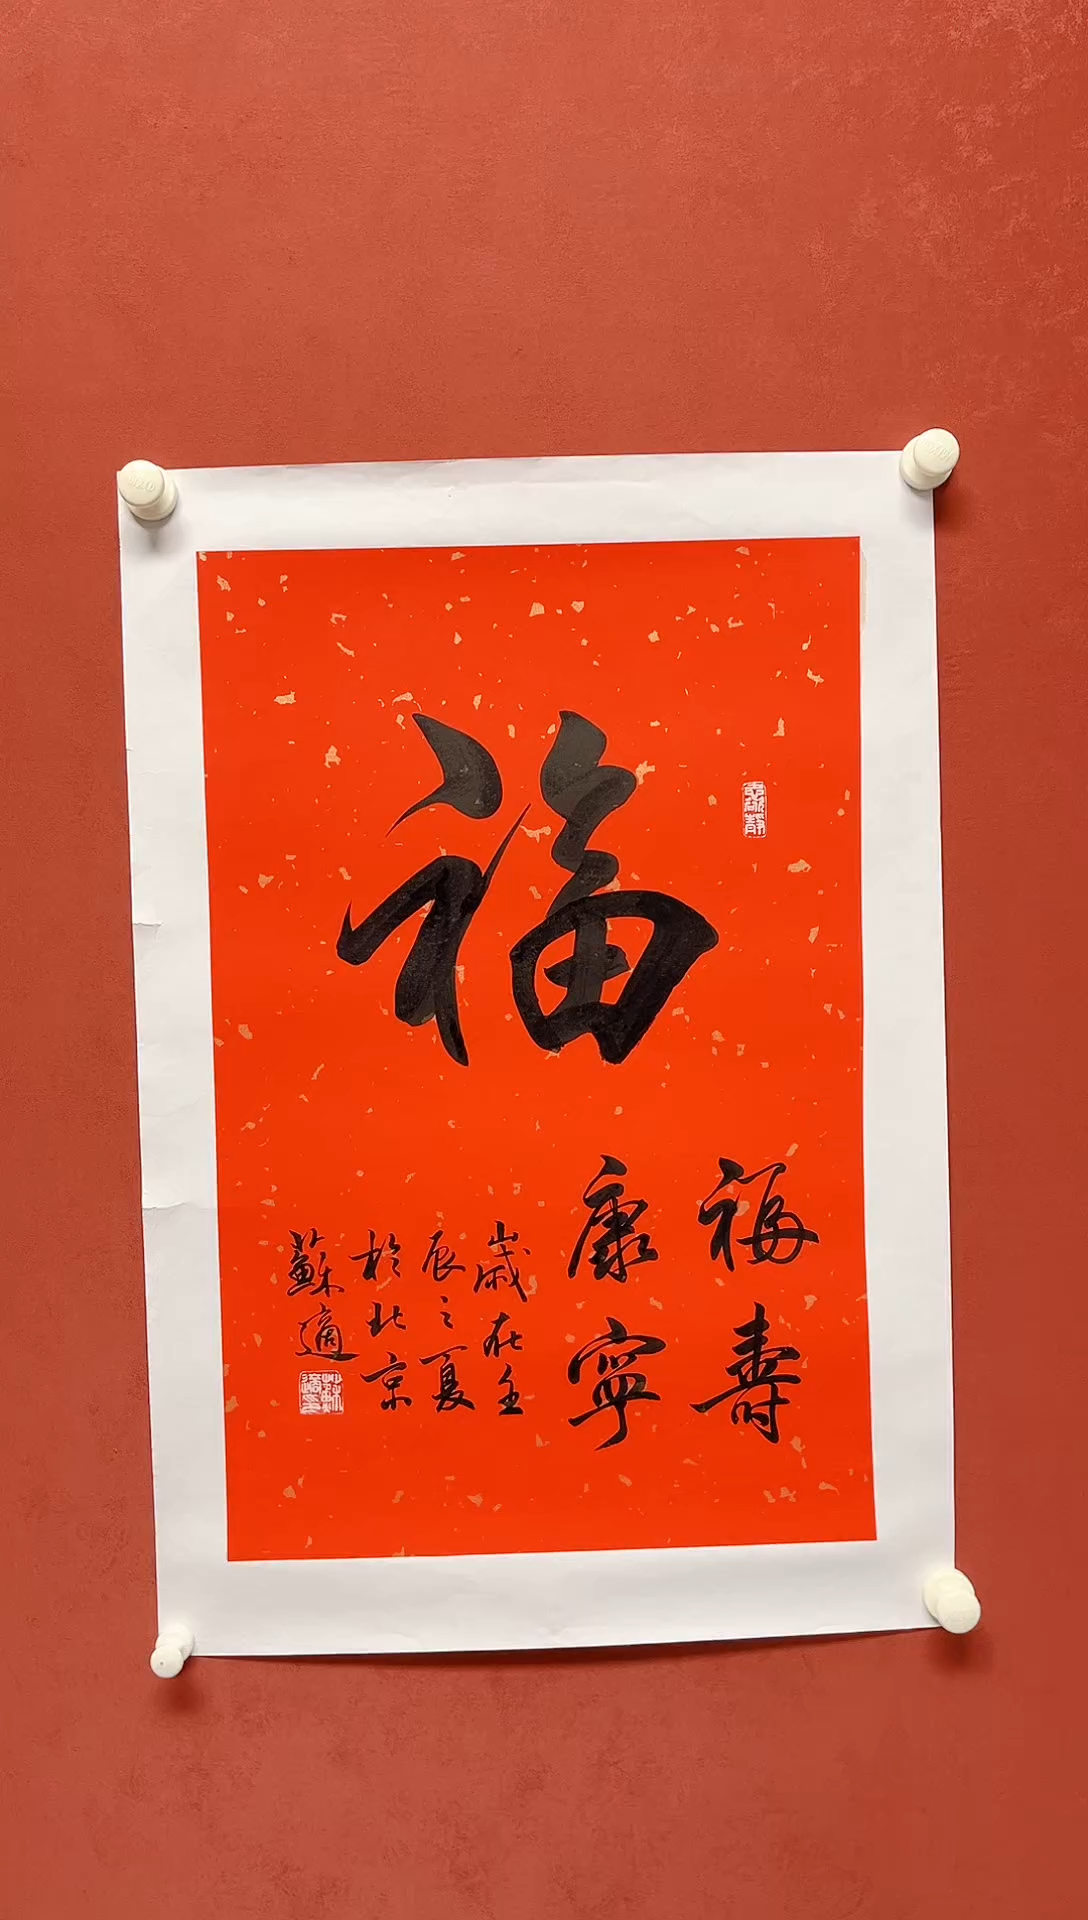 福
福壽
康寧
歲在壬
辰之夏
於北京
蘇適